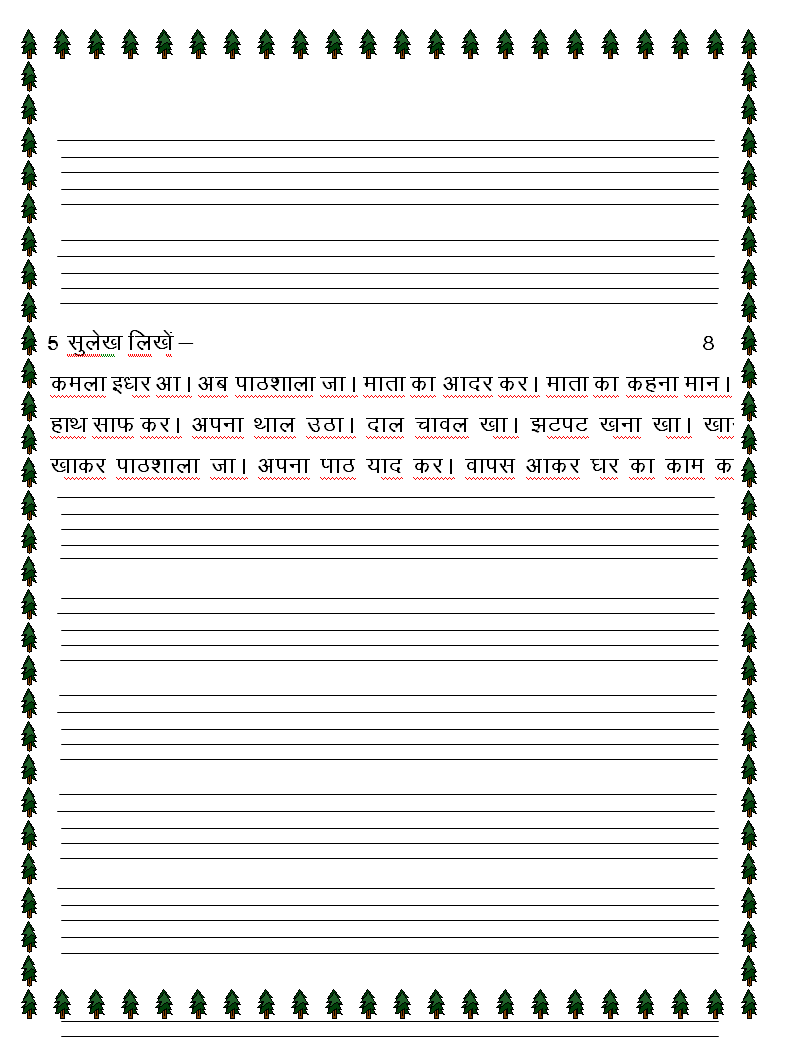 5 सुलेख लिखें – 8
कमला इधर आ। अब पाठशाला जा। माता का आदर कर। माता का कहना मान।
हाथ साफ कर। अपना थाल उठा। दाल चावल खा। झटपट खना खा।
खाकर पाठशाला जा। अपना पाठ याद कर। वापस आकर घर का काम